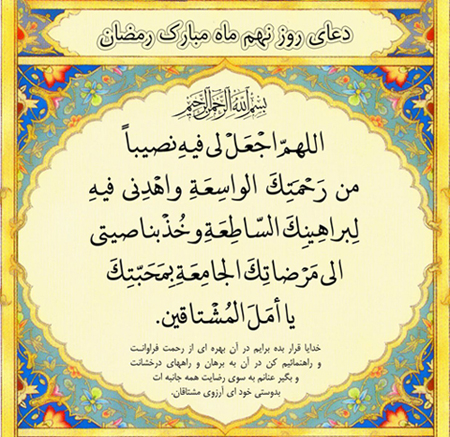 دعای روز نهم ماه مبارک رمضان
بِسْمِ اللَّهِ الرَّحْمَنِ الرَّحِيمِ
اللهمّ اجْعَلْ لی فیهِ نصیباً
من رَحْمَتِكَ الواسِعَةِ واهْدِنی فیهِ
لِبراهینِكَ السّاطِعَةِ وخُذْ بناصیتی
الی مَرْضاتِكَ الجامِعَةِ بِمَحَبّتِكَ
یا أمَلَ المُشْتاقین.
خدایا قرار بده برایم در آن بهره ای از رحمت فراوانـت
و راهنمائیم کن در آن به برهان و راههای درخشانت
و بگیر عنانم به سوی رضایت همه جانبه ات
بدوستی خود ای آرزوی مشتاقان.